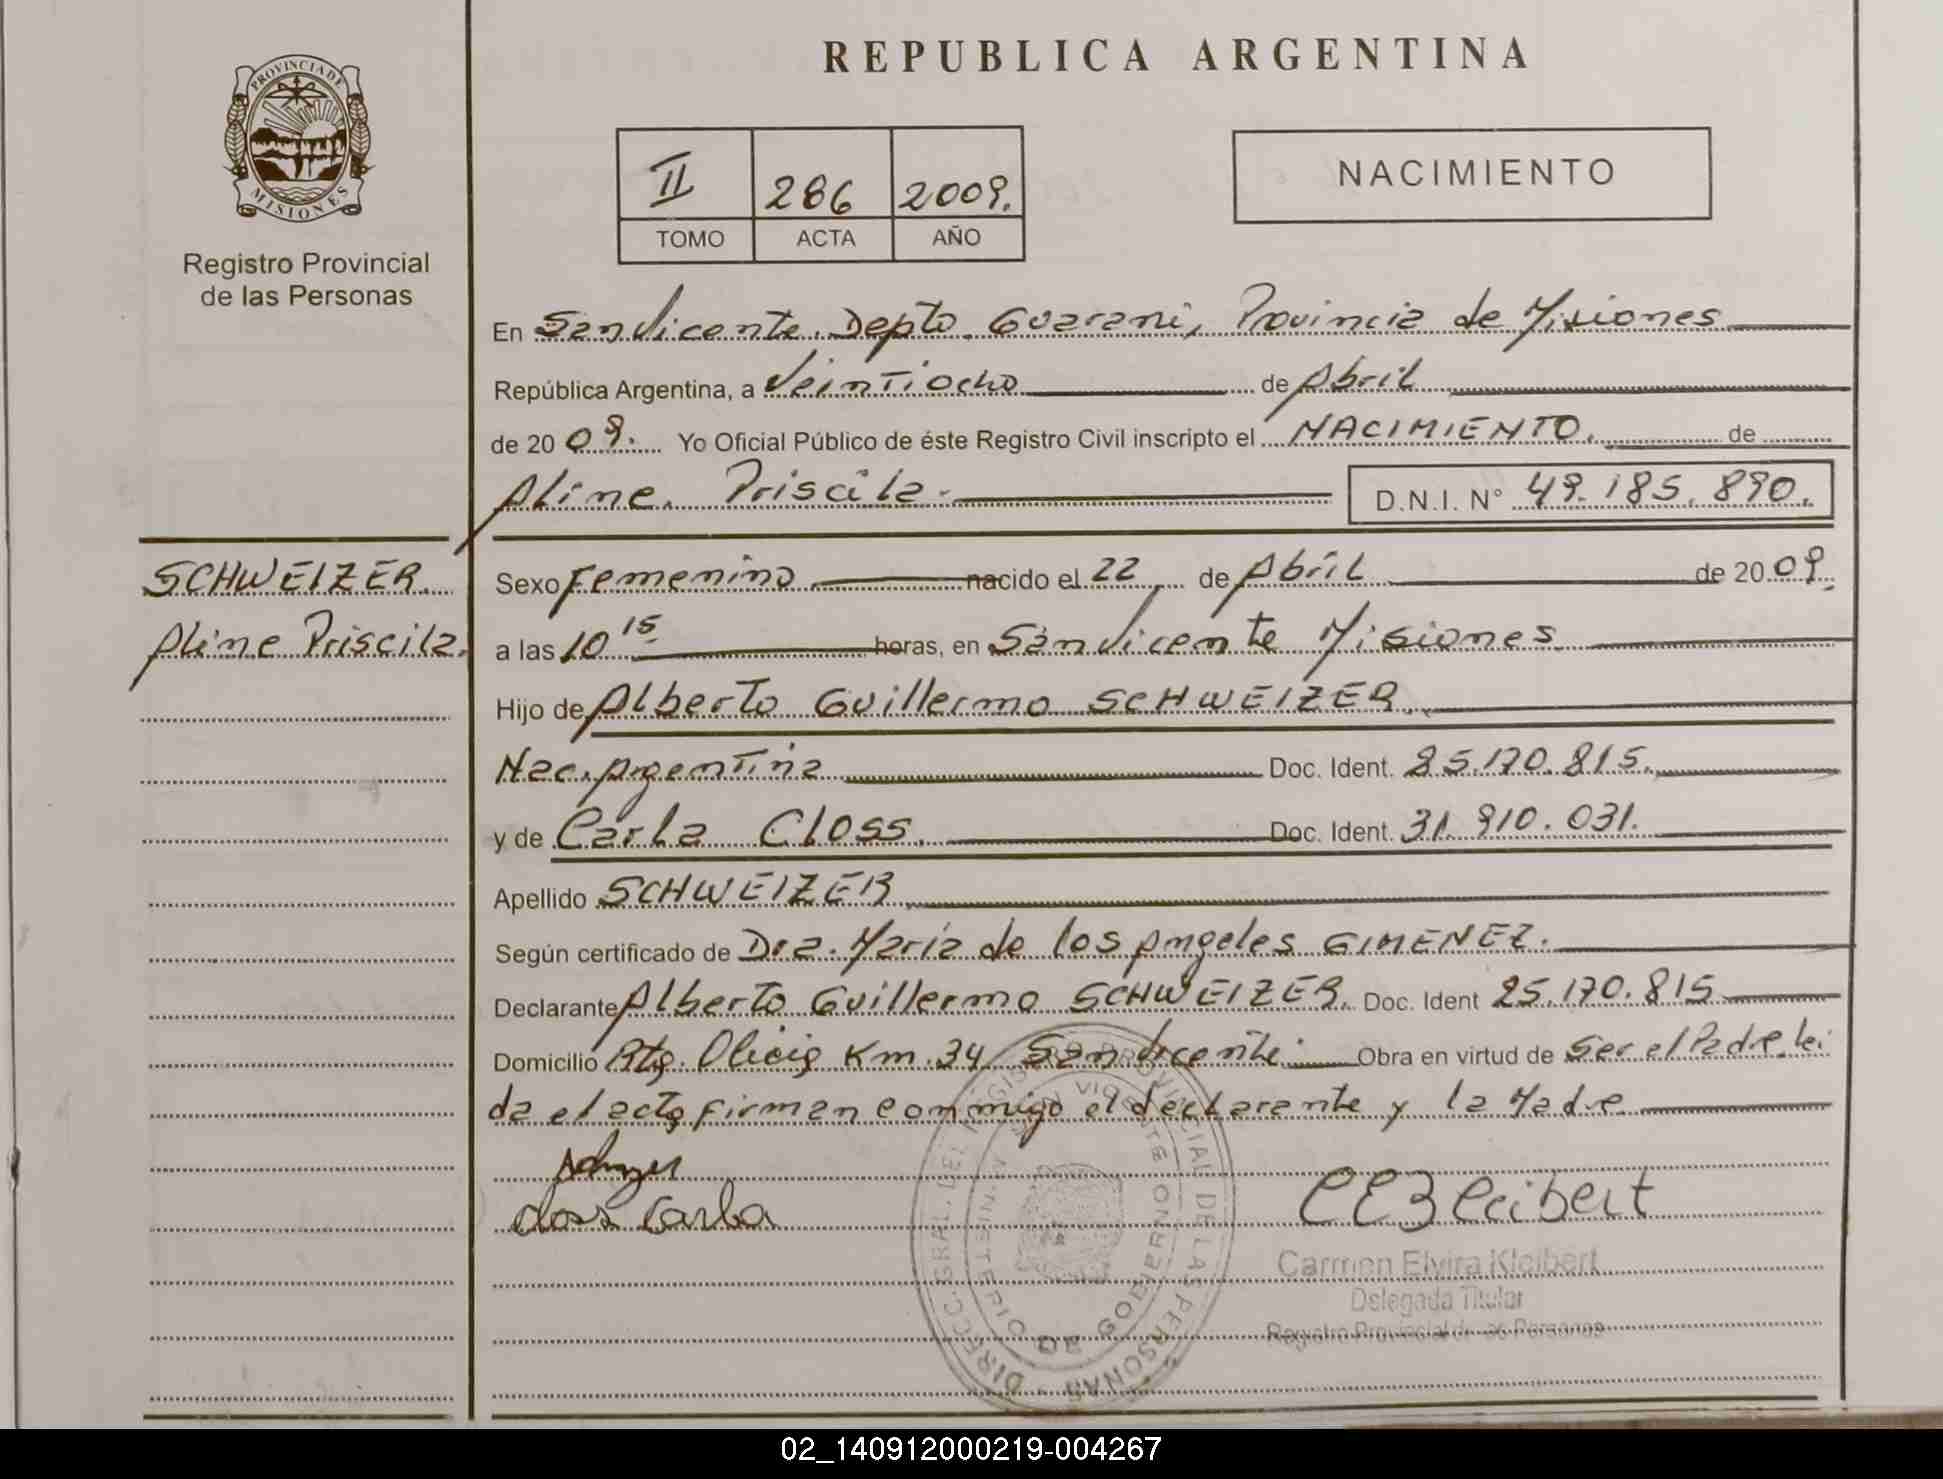 REPUBLICA ARGENTINA
PROVINCIA DE
MISIONES
Registro Provincial
de las Personas
II 286 2009.
TOMO ACTA AÑO
NACIMIENTO
En San Vicente. Depto. Guarani, Provincia de Misiones
República Argentina, a Veintiocho de Abril
de 20 09. Yo Oficial Público de éste Registro Civil inscripto el NACIMIENTO. de
Aline. Priscila. D.N.I. N° 49.185.890.
SCHWEIZER.
Aline Priscila.
Sexo Femenino nacido el 22 de Abril de 20 09.
a las 10 15 horas, en San Vicente Misiones
Hijo de Alberto Guillermo SCHWEIZER.
Nac. Argentina Doc. Ident. 25.170.815.
y de Carla Closs. Doc. Ident. 31.910.031.
Apellido SCHWEIZER
Según certificado de Dra. Maria de los Angeles GIMENEZ.
Declarante Alberto Guillermo SCHWEIZER. Doc. Ident 25.170.815
Domicilio Km. 34 San Vicente. Obra en virtud de Ser el Padre. lei
da el acta firman conmigo el declarante y la Madre.
Closs Carla
Kleibert
Carmen Elvira Kleibert
Delegada Titular
Registro Provincial de las Personas
DIREC. GRAL. DEL REGISTRO PROVINCIAL DE LAS PERSONAS
MINISTERIO DE GOBIERNO
SAN VICENTE
02_140912000219-004267